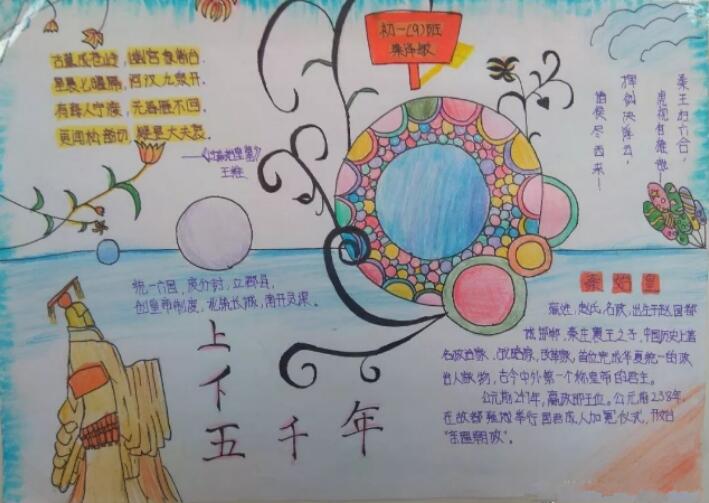 古墓成苍岭,幽宫象紫台.
星辰七曜隔,河汉九泉开.
有海人宁渡,无春雁不回.
更闻松韵切,疑是大夫哀.
——《过始皇墓》
王维
初一(9)班
秦王扫六合,
虎视何雄哉!
挥剑决浮云,
诸侯尽西来!
统一六国,废分封,立郡县,
创皇帝制度,北筑长城,南开灵渠。
上
下
五千年
秦始皇
嬴姓,赵氏,名政,出生于赵国都
城邯郸,秦庄襄王之子,中国历史上著
名政治家、战略家、改革家,首位完成华夏统一的政
治人物,古今中外第一个称皇帝的君主。
公元前247年,嬴政即王位。公元前238年,
在故都雍城举行国君成人加冕仪式,开始
"亲理朝政"。